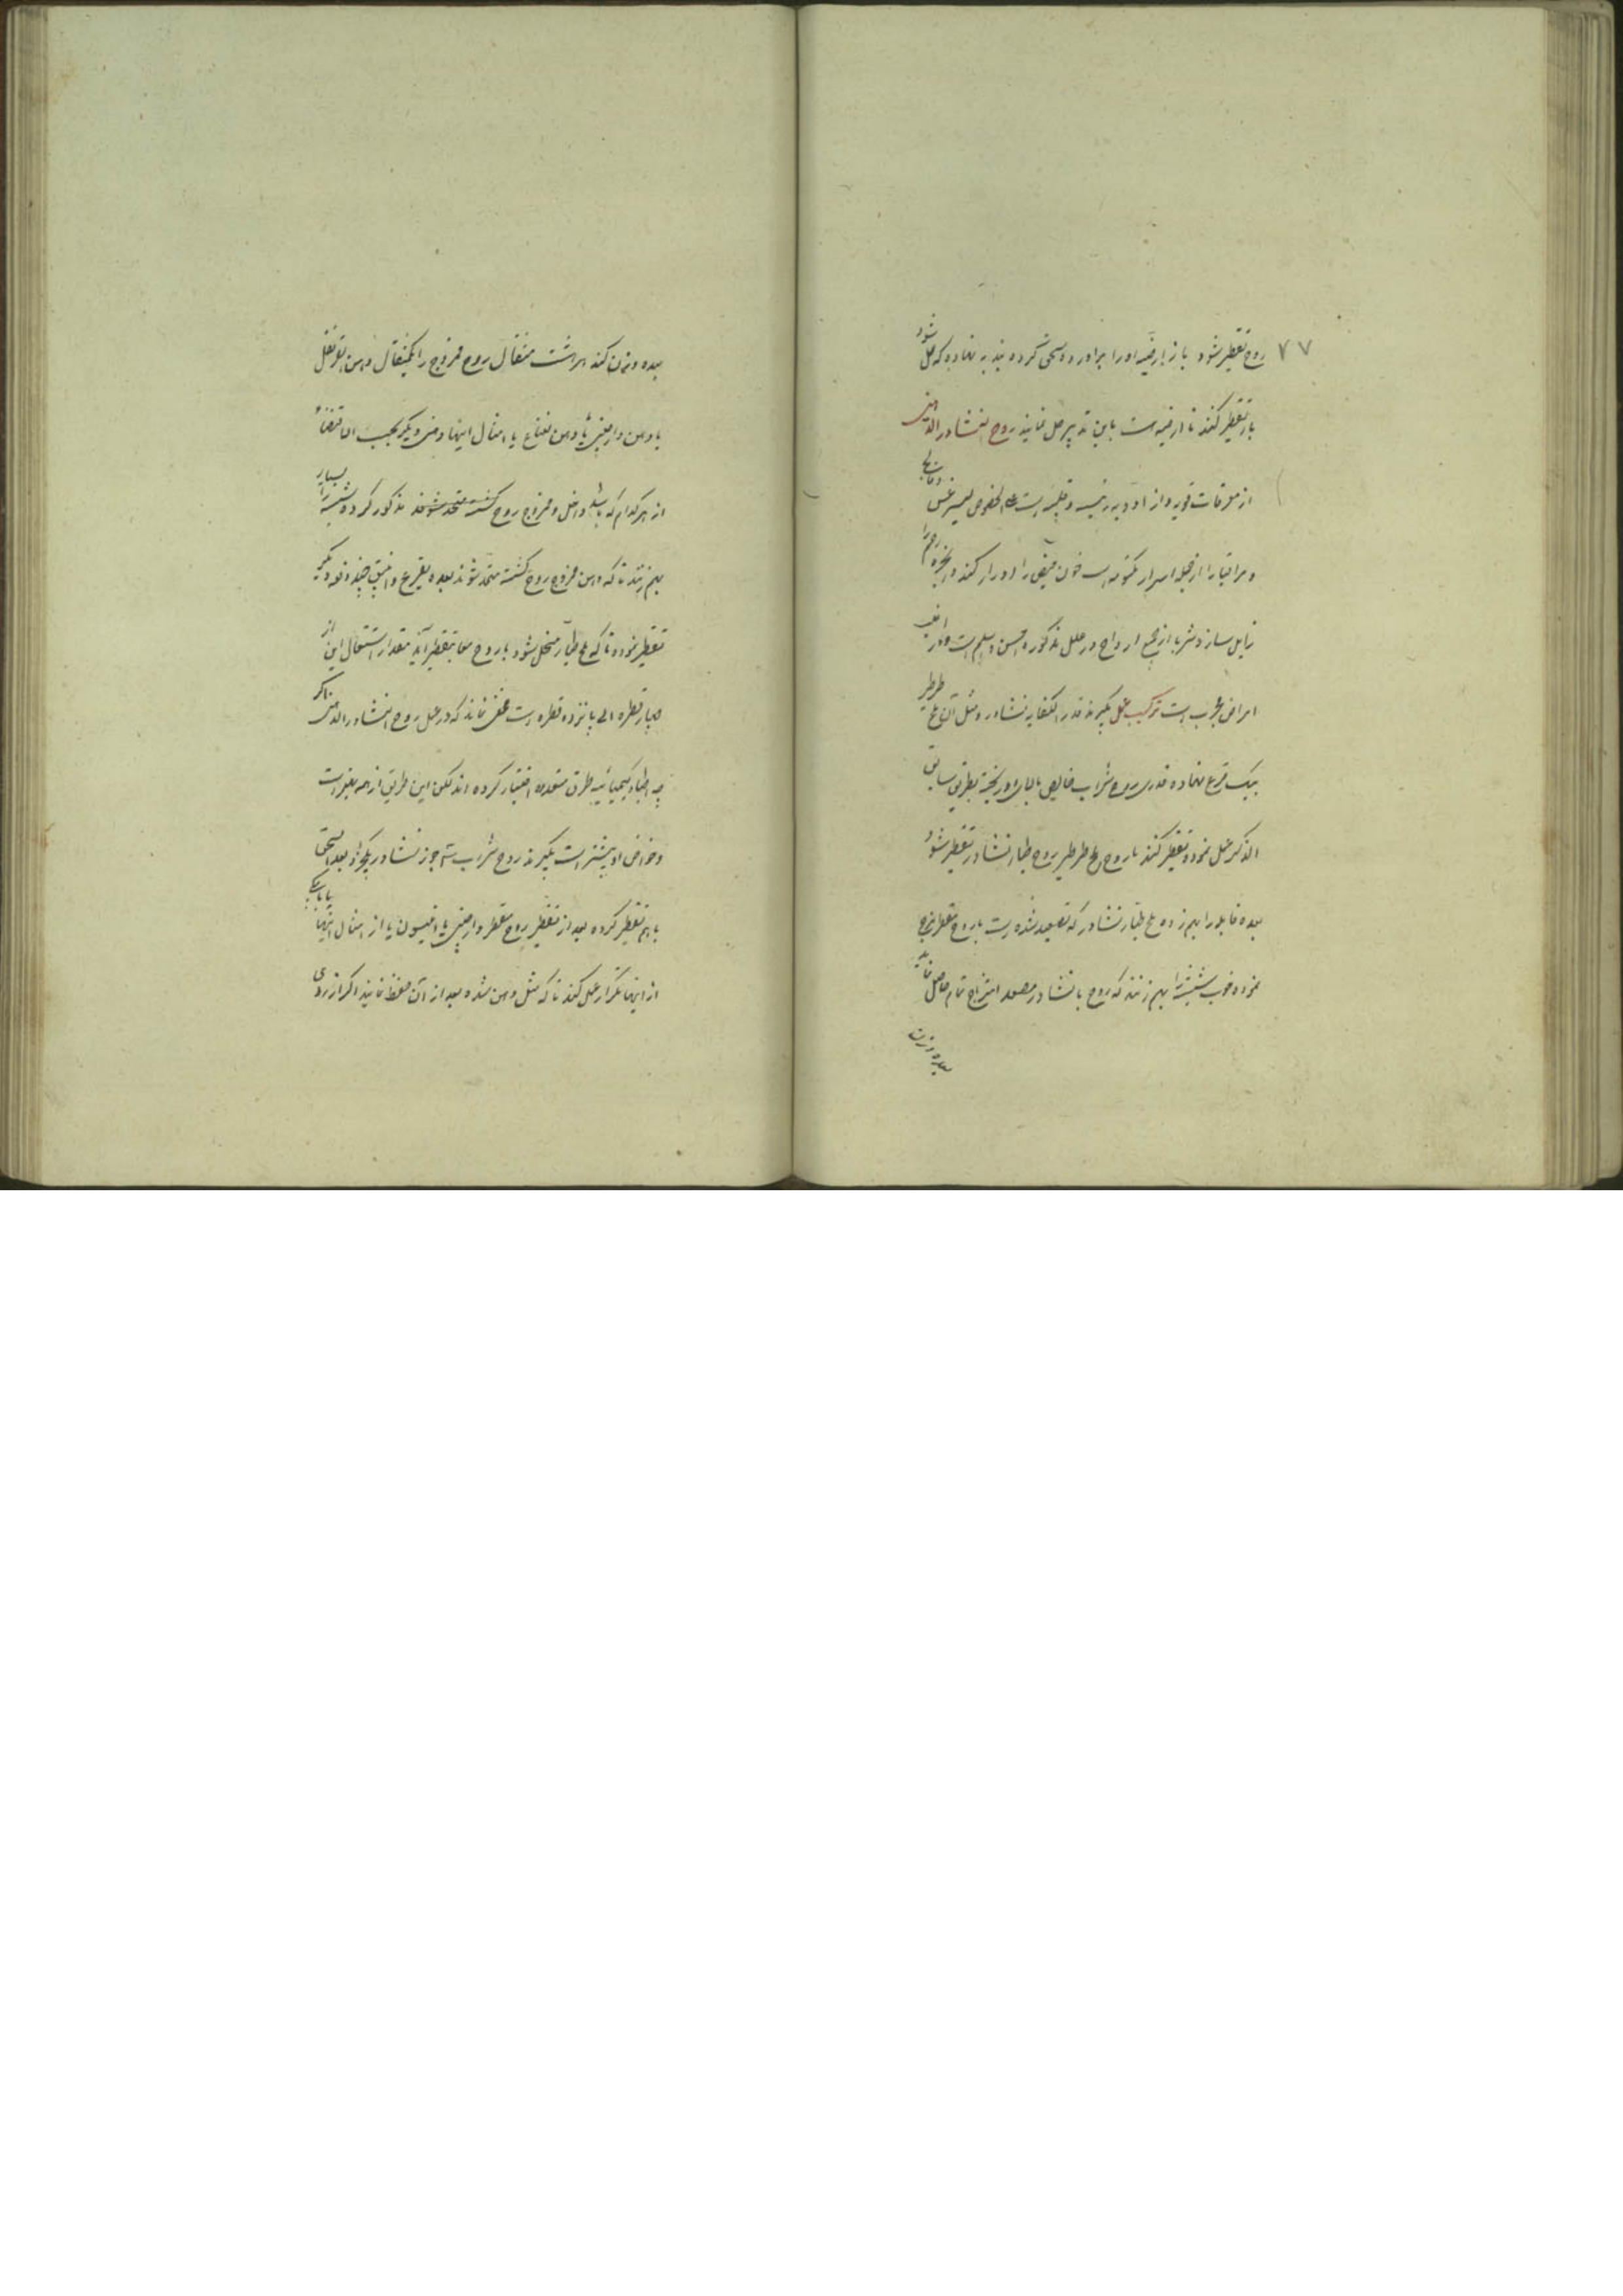 ۷۷
روح تقطیر شود باز ارضیه او را براورده سحق کرده بندیه نهاده که حل شود
باز تقطیر کنند تا ارضیه است باین تدبیر حل نمایند روح النشادر الدهنی
از معرقات قویه و از ادویه رئیسه و قلبیه است علی الخصوص لیسرغس و مالیخ
و مراقیا را از جمله اسرار مکتومه است خون حیض را ادرار کند و ابخره رحم را
زایل سازد شربا از جمیع ارواح در علل مذکوره احسن و اسلم است و در اغلب
امراض مجرب است ترکیب عمل بگیرند قدر الکفایه نشادر و مثل آن ملح طرطیر
بیک قرع نهاده قدری روح شراب خالص بالای او ریخته بطریق سابق
الذکر عمل نموده تقطیر کنند تا روح ملح طرطیر روح طیار نشادر تقطیر شود
بعده قابله را بهم زده ملح طیار نشادر که تصعید شده است با روح مقطر مزج
نموده خوب شیشه را بهم زنند که روح با نشادر مصعد امتزاج تمام حاصل نماید
بعده وزن
بعده وزن کند هر هشت مثقال روح ممزوج را یکمثقال دهن قرنفل
یا دهن دارچینی یا دهن نعناع یا امثال اینها دهنی دیگر بحسب الاقتضاء
از هر کدام که باشد داخل ممزوج روح مذکور کرده شیشه را بسیار
بهم زنند تا که دهن ممزوج روح کشته متحد شوند بعده بقرع و انبیق چند دفعه دیگر
تقطیر نموده تا که ملح طیار منحل شود با روح معا بتقطیر آید مقدار استعمال این از
چهار قطره الی پانزده قطره است مخفی نماند که در عمل روح النشادر الدهنی اگر
چه اطباء کیمیائیه طرق متعدده اختیار کرده اند لکن این طریق از همه بهتر است
و خواص او بیشتر است بگیرند روح شراب ۳ جزء نشادر یکجزو بعد السحق
باهم تقطیر کرده بعد از تقطیر روح مقطر دارچینی یا انیسون یا از امثال اینها یا با یکی
از اینها تکرار عمل کنند تا که مثل دهن شده بعد از آن حفظ نمایند اگر از روی